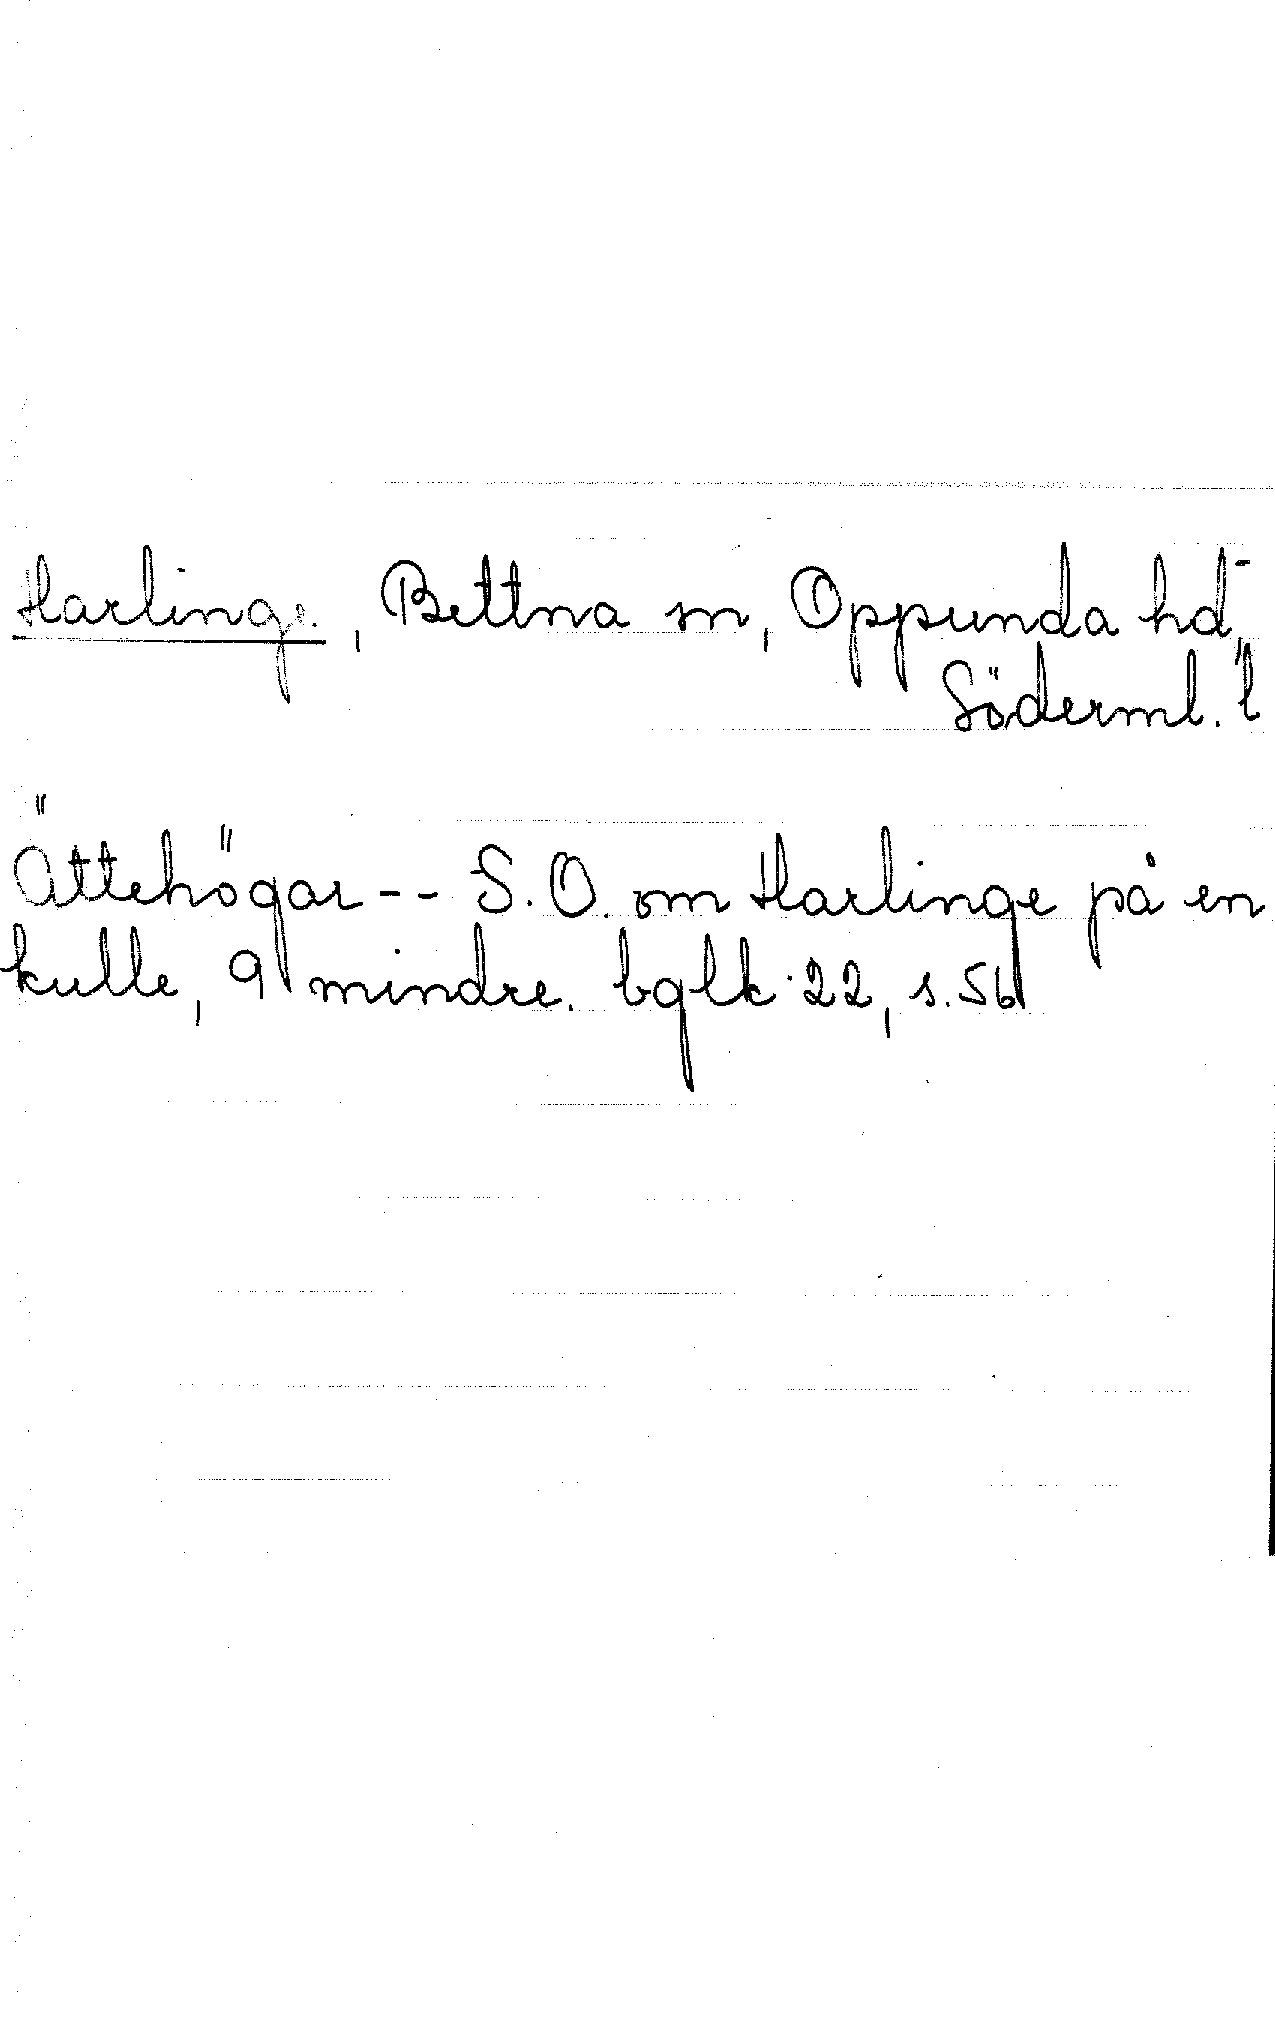 Harlinge, Bettna sn, Oppunda hd,
Söderml. l
Ättehögar -- S.O. om Harlinge på en
kulle, 9 mindre. bglk 22, s. 56